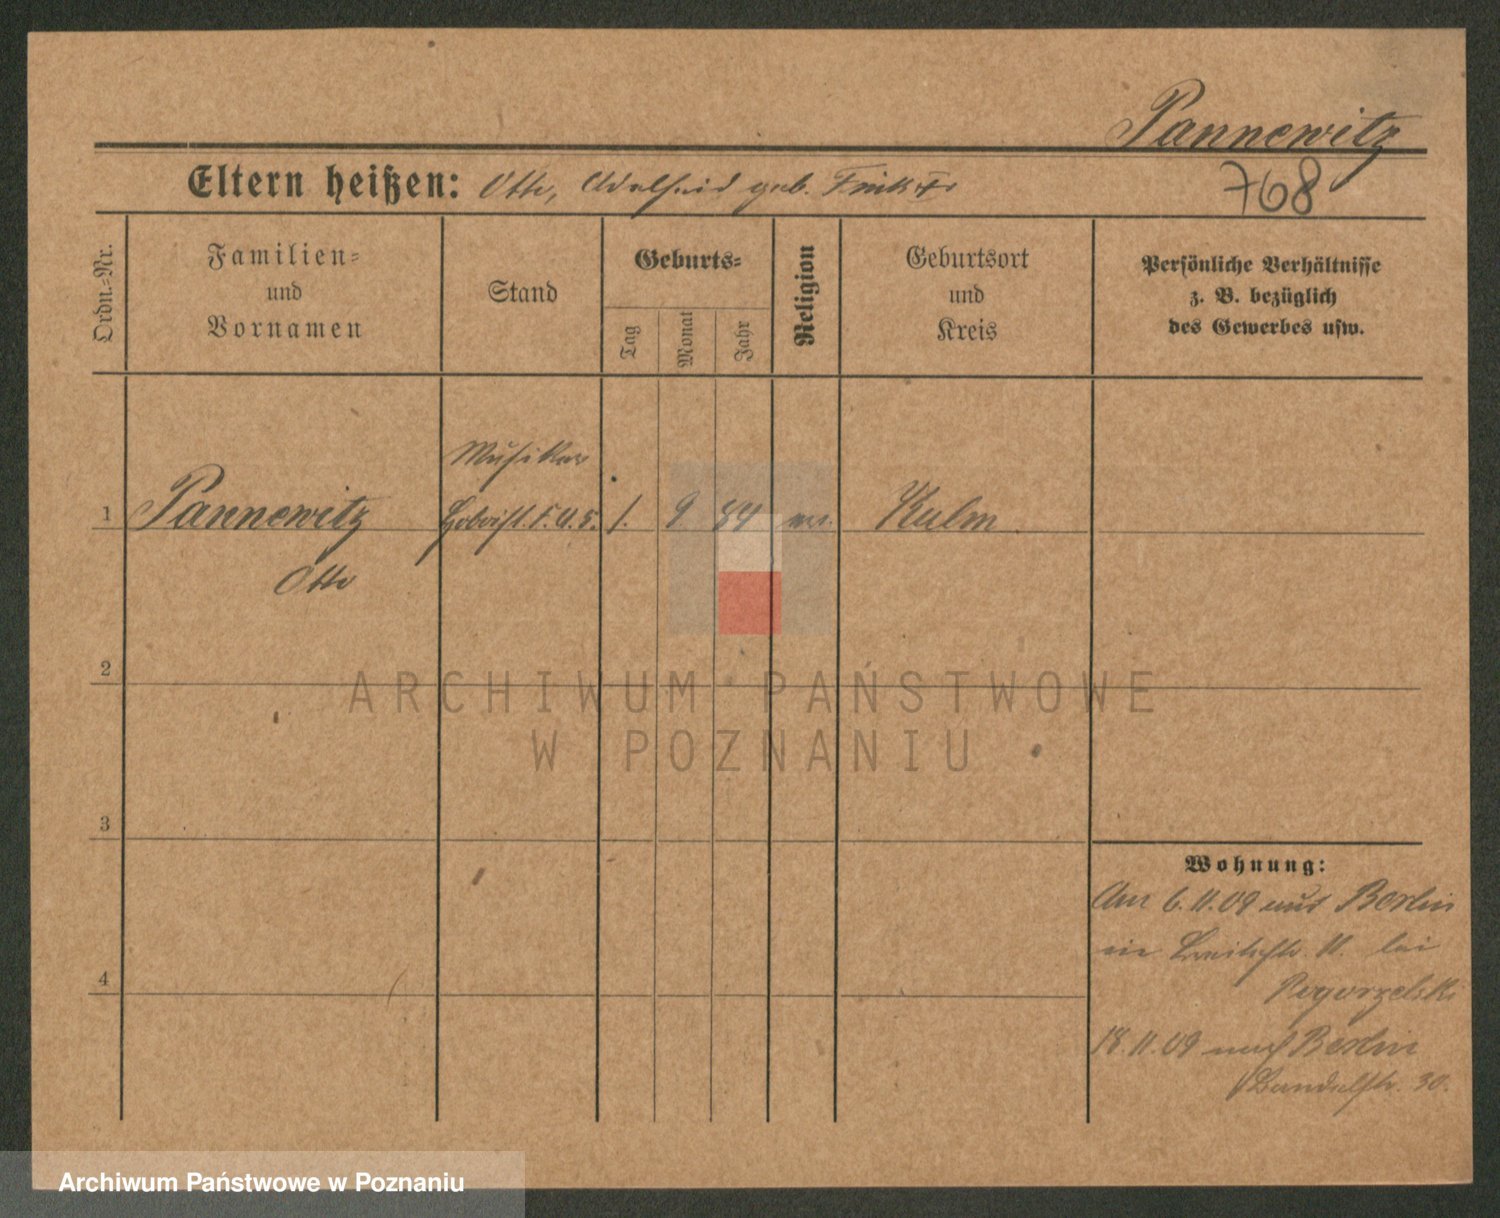 Pannewitz
768
Eltern heißen: Otto, Adelheid geb.
Ordn.=Nr.
Familien=
und
Vornamen
Stand
Geburts=
Tag
Monat
Jahr
Religion
Geburtsort
und
Kreis
Persönliche Verhältnisse
z. B. bezüglich
des Gewerbes usw.
Musiker
1 Pannewitz Hoboist. 1. 9 84 ev. Kulm
Otto
2
3
4
Wohnung:
Am 6.11.09 aus Berlin
in Breitestr. 11. bei
Pogorzelski
18.11.09 nach Berlin
30.
ARCHIWUM PAŃSTWOWE
W POZNANIU
Archiwum Państwowe w Poznaniu